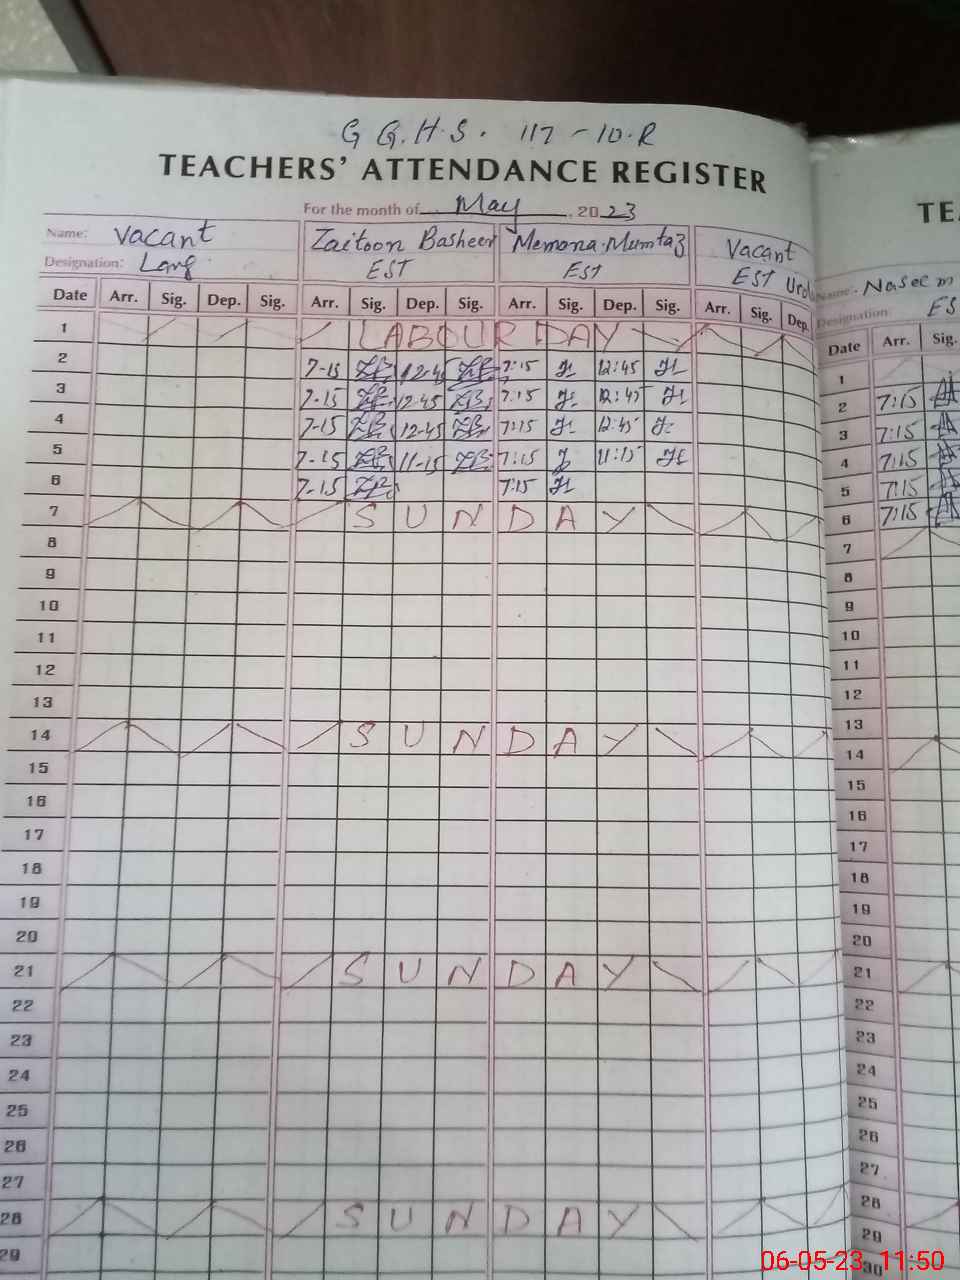 G G.H.S. 117-10.R
TEACHERS' ATTENDANCE REGISTER
For the month of May, 2023
Name: Vacant Zaitoon Basheer Memona Mumtaz Vacant
Designation: EST EST EST Urdu
Date Arr. Sig. Dep. Sig. Arr. Sig. Dep. Sig. Arr. Sig. Dep. Sig. Arr. Sig. Dep.
1 LABOUR DAY
2 7-15 ZB 12-45 ZB 7:15 12:45
3 7-15 ZB 12-45 ZB 7:15 12:45
4 7-15 ZB 12-45 ZB 7:15 12:45
5 7-15 ZB 11-15 ZB 7:15 11:15
6 7-15 ZB 7:15
7 SUNDAY
8
9
10
11
12
13
14 SUNDAY
15
16
17
18
19
20
21 SUNDAY
22
23
24
25
26
27
28 SUNDAY
29
TE
Name: Naseem
Designation: ES
Date Arr. Sig.
1
2 7:15
3 7:15
4 7:15
5 7:15
6 7:15
7
8
9
10
11
12
13
14
15
16
17
18
19
20
21
22
23
24
25
26
27
28
29
30
06-05-23 11:50